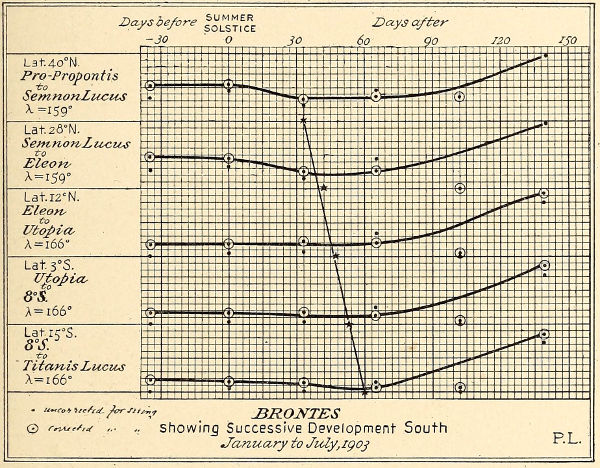 Days before SUMMER SOLSTICE Days after
-30 0 30 60 90 120 150
Lat. 40°N.
Pro-Propontis
to
Semnon Lucus
λ = 159°
Lat. 28°N.
Semnon Lucus
to
Eleon
λ = 159°
Lat. 12°N.
Eleon
to
Utopia
λ = 166°
Lat. 3°S.
Utopia
to
8°S.
λ = 166°
Lat. 15°S.
8°S.
to
Titanis Lucus
λ = 166°
uncorrected for seeing
corrected " "
BRONTES
showing Successive Development South
January to July, 1903
P.L.